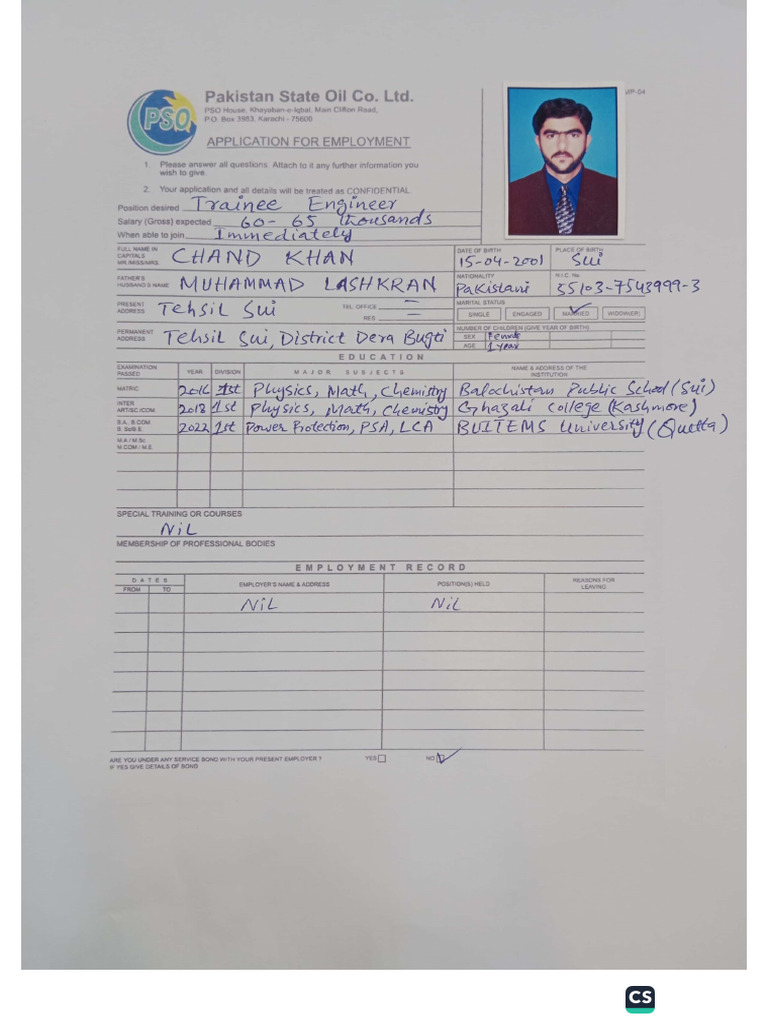 Pakistan State Oil Co. Ltd.
PSO House, Khayaban-e-Iqbal, Main Clifton Road,
P.O. Box 3983, Karachi - 75600
PSO
MP-04
APPLICATION FOR EMPLOYMENT
1. Please answer all questions. Attach to it any further information you
wish to give.
2. Your application and all details will be treated as CONFIDENTIAL
Position desired Trainee Engineer
Salary (Gross) expected 60-65 thousands
When able to join Immediately
FULL NAME IN CAPITALS MR./MISS/MRS. CHAND KHAN
DATE OF BIRTH 15-04-2001
PLACE OF BIRTH Sui
FATHER'S HUSBAND'S NAME MUHAMMAD LASHKRAN
NATIONALITY Pakistani
N.I.C. No. 55103-7543999-3
PRESENT ADDRESS Tehsil Sui
TEL: OFFICE —
RES —
MARITAL STATUS
SINGLE ENGAGED MARRIED WIDOW(ER)
PERMANENT ADDRESS Tehsil Sui, District Dera Bugti
NUMBER OF CHILDREN (GIVE YEAR OF BIRTH)
SEX Female
AGE 1 year
EDUCATION
EXAMINATION PASSED YEAR DIVISION MAJOR SUBJECTS NAME & ADDRESS OF THE INSTITUTION
MATRIC 2016 1st Physics, Math, Chemistry Balochistan Public School (Sui)
INTER ART/SC./COM. 2018 1st Physics, Math, Chemistry Ghazali College (Kashmore)
B.A., B.COM. 2022 1st Power Protection, PSA, LCA BUITEMS University (Quetta)
M.A / M.Sc. M.COM / M.E.
SPECIAL TRAINING OR COURSES
NiL
MEMBERSHIP OF PROFESSIONAL BODIES
EMPLOYMENT RECORD
DATES EMPLOYER'S NAME & ADDRESS POSITION(S) HELD REASONS FOR LEAVING
FROM TO
NiL NiL
ARE YOU UNDER ANY SERVICE BOND WITH YOUR PRESENT EMPLOYER ? YES NO
IF YES GIVE DETAILS OF BOND
CS